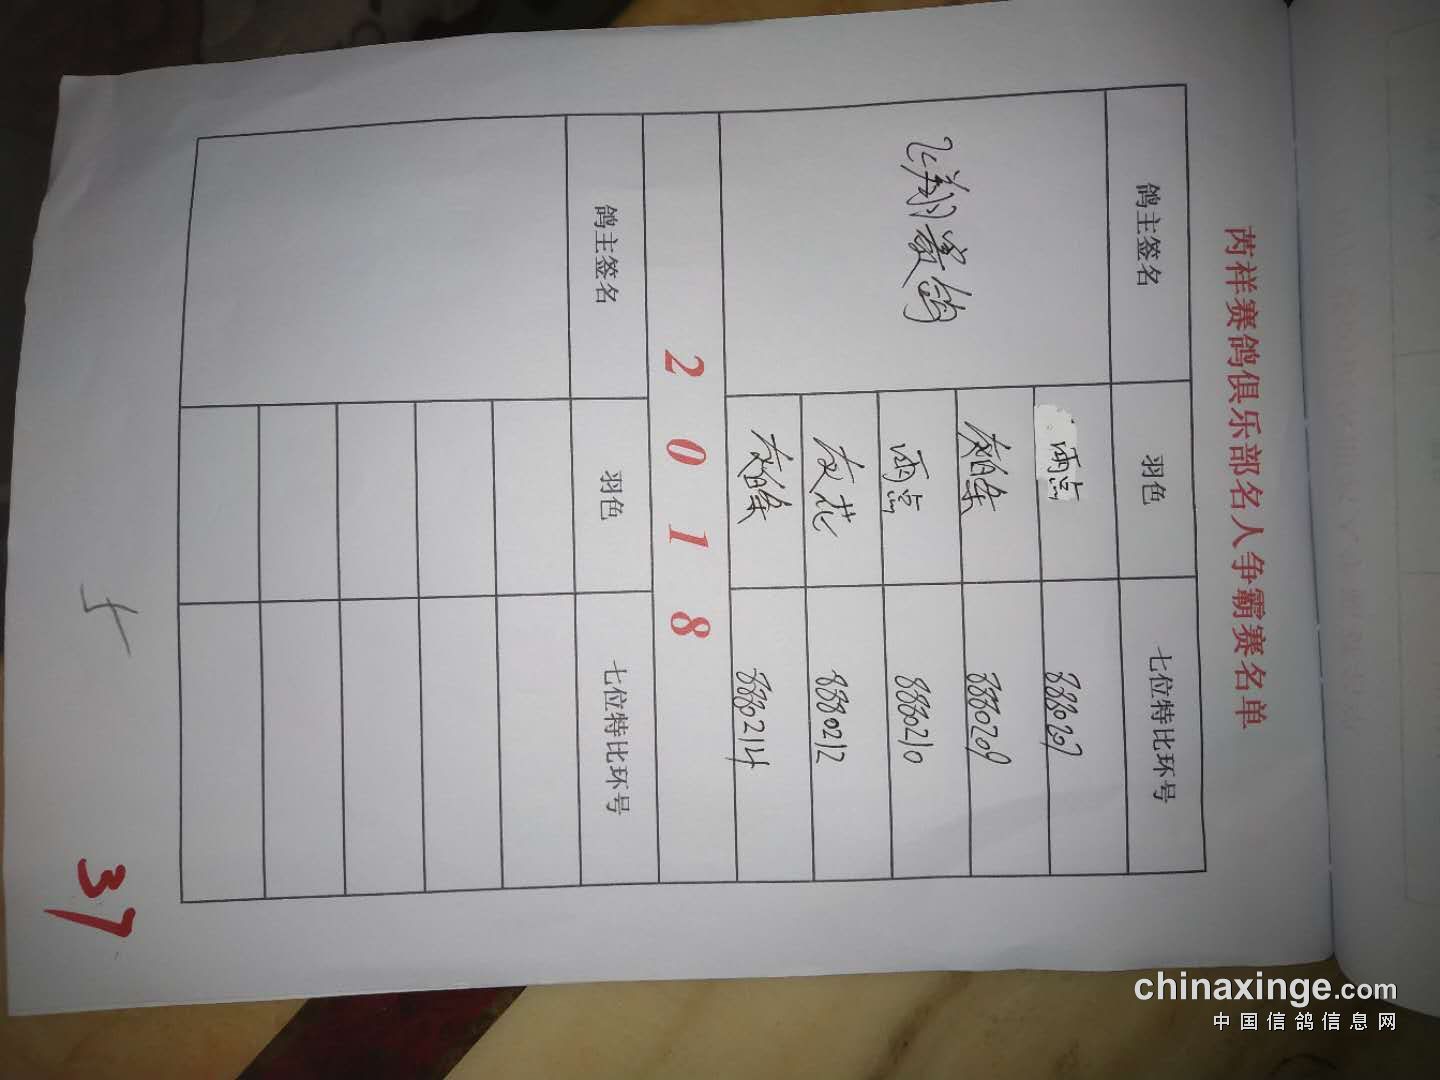 芮祥赛鸽俱乐部名人争霸赛名单
鸽主签名 羽色 七位特比环号
飞翔赛鸽
雨点 8880207
灰白条 8880209
雨点 8880210
灰花 8880212
灰白条 8880214
2018
鸽主签名 羽色 七位特比环号
37
chinaxinge.com
中国信鸽信息网